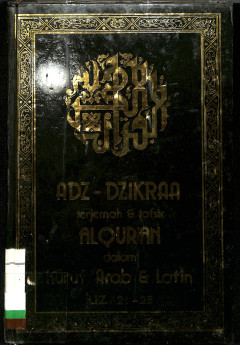 ADZ-DZIKRAA
terjemah & tafsir
ALQUR'AN
dalam
Huruf Arab & Latin
JUZ 21-25